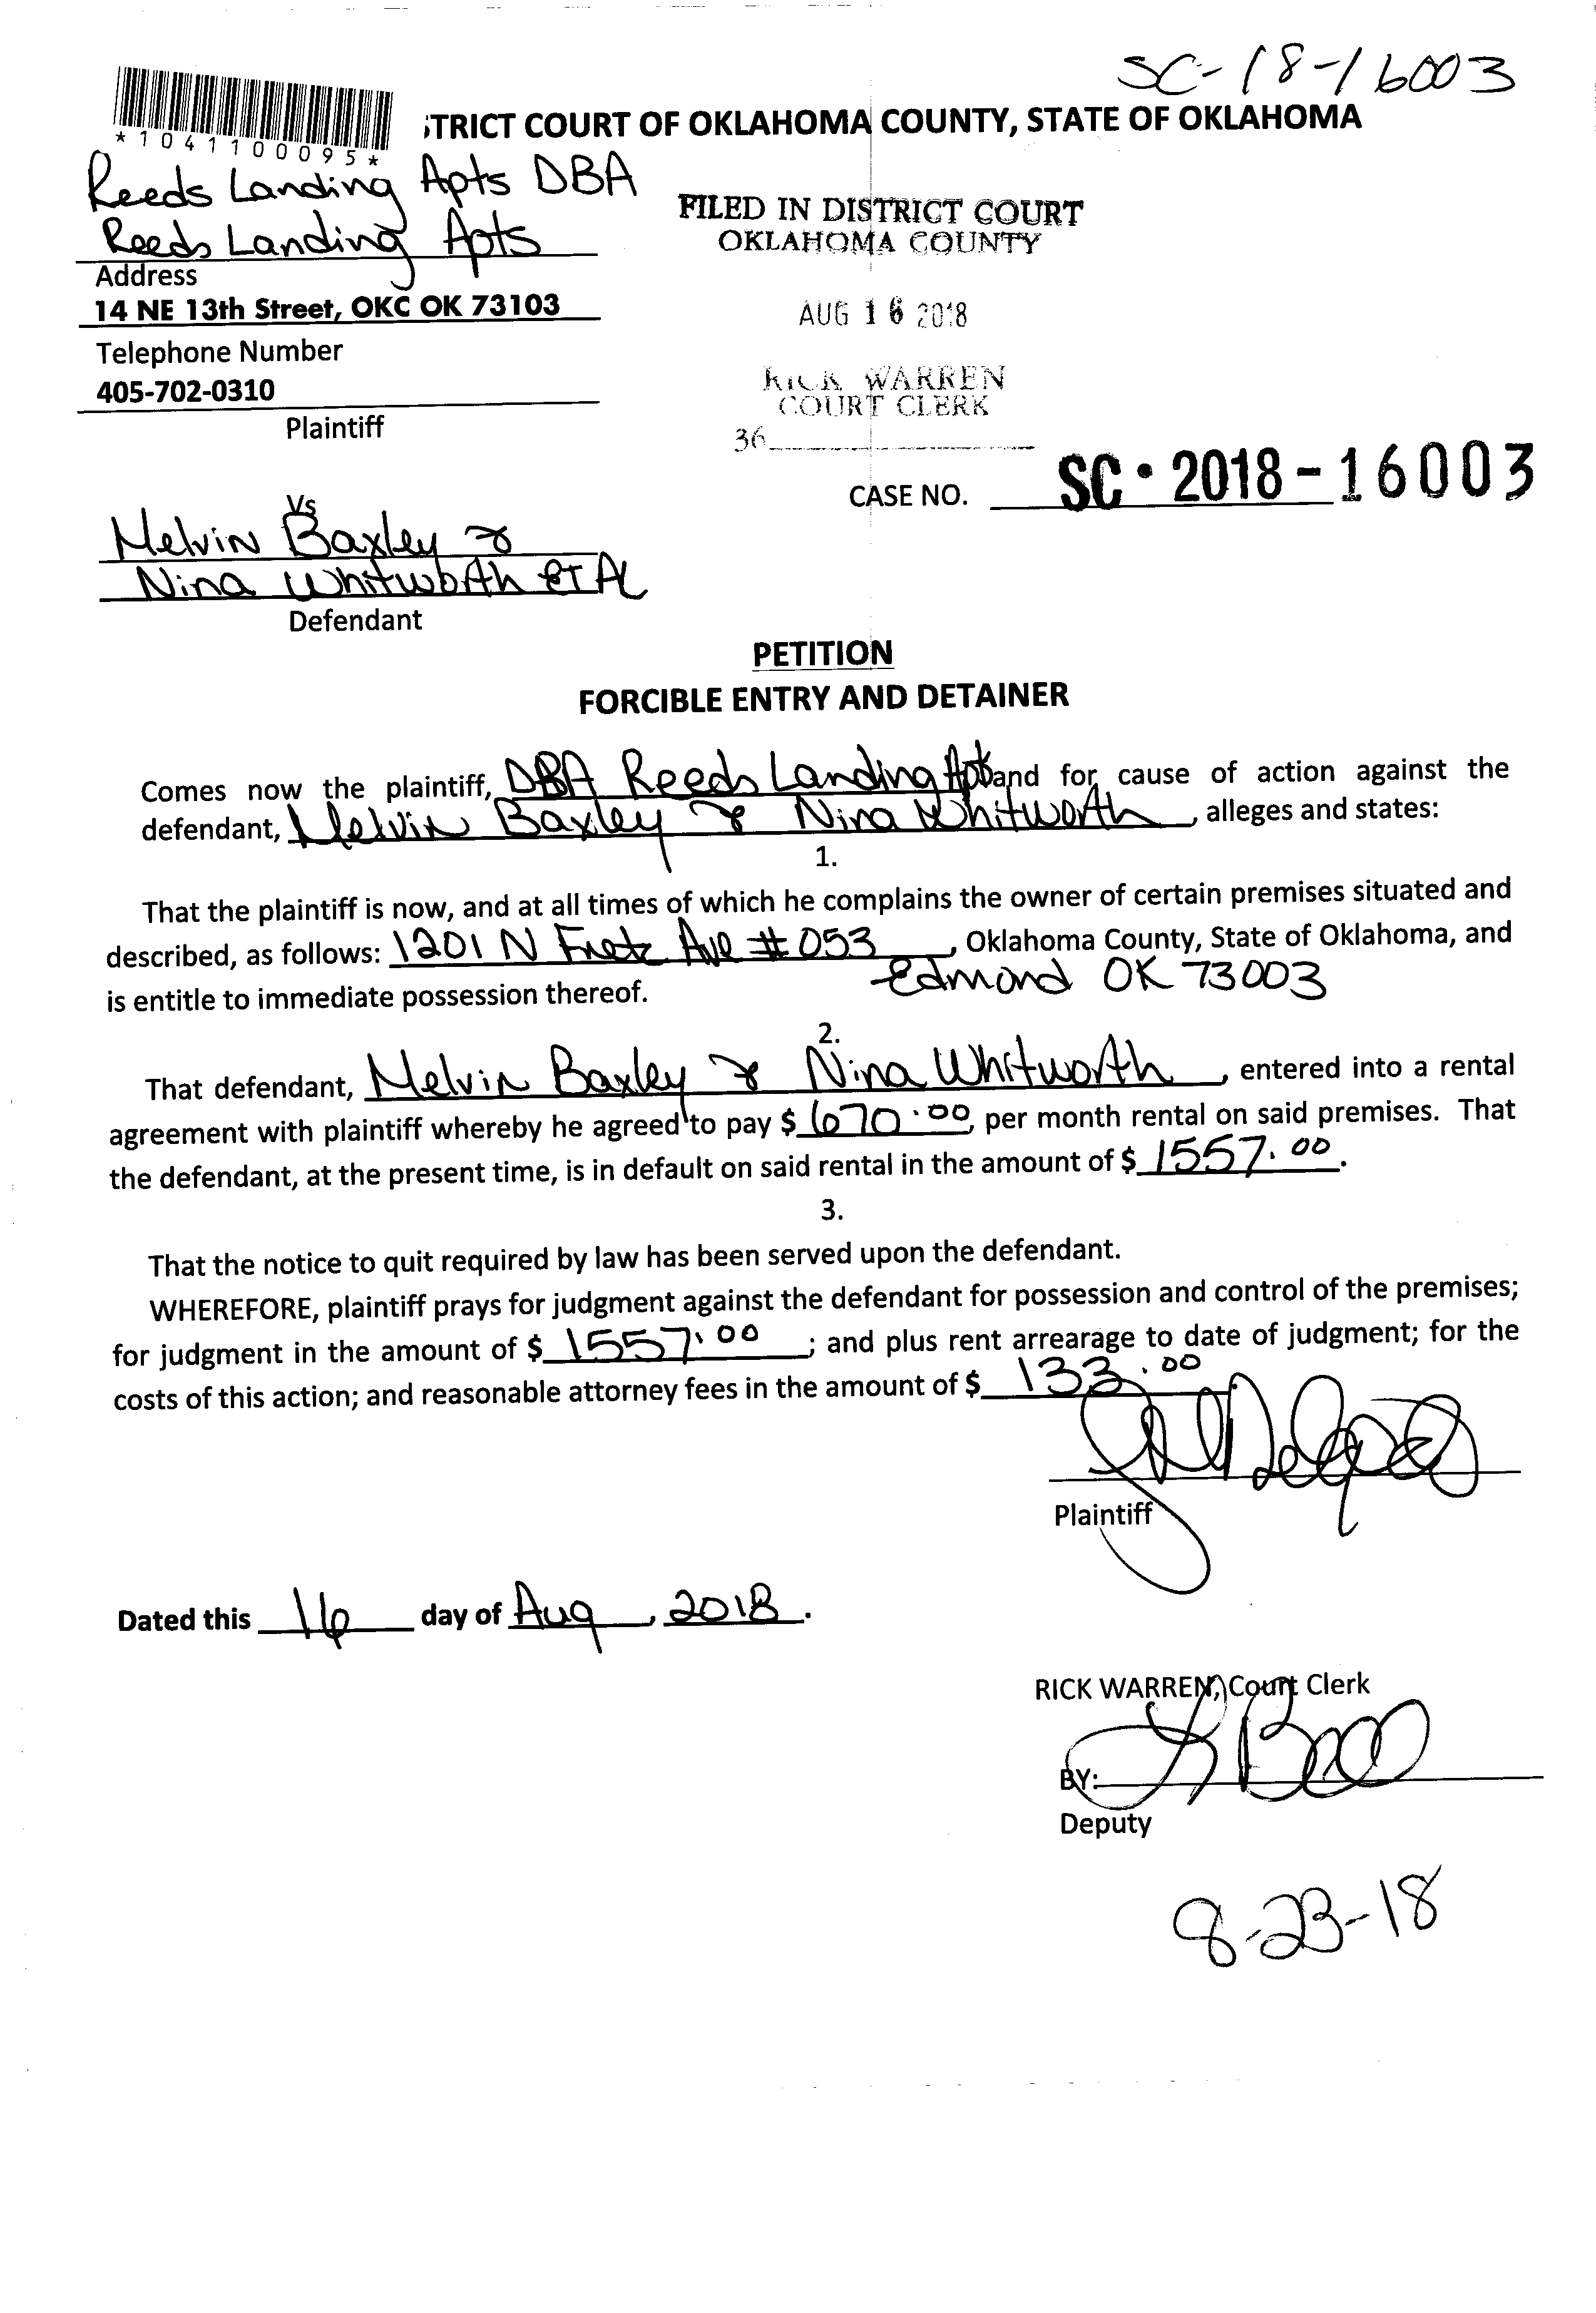 SC-18-16003
*1041100095*
TRICT COURT OF OKLAHOMA COUNTY, STATE OF OKLAHOMA
Reeds Landing Apts DBA
Reeds Landing Apts
Address
14 NE 13th Street, OKC OK 73103
Telephone Number
405-702-0310
Plaintiff
FILED IN DISTRICT COURT
OKLAHOMA COUNTY
AUG 16 2018
RICK WARREN
COURT CLERK
36
CASE NO. SC-2018-16003
Vs
Melvin Baxley &
Nina Whitworth ET AL
Defendant
PETITION
FORCIBLE ENTRY AND DETAINER
Comes now the plaintiff, DBA Reeds Landing Apts and for cause of action against the
defendant, Melvin Baxley & Nina Whitworth, alleges and states:
1.
That the plaintiff is now, and at all times of which he complains the owner of certain premises situated and
described, as follows: 1201 N Fretz Ave # 053, Oklahoma County, State of Oklahoma, and
Edmond OK 73003
is entitle to immediate possession thereof.
2.
That defendant, Melvin Baxley & Nina Whitworth, entered into a rental
agreement with plaintiff whereby he agreed to pay $ 670.00, per month rental on said premises. That
the defendant, at the present time, is in default on said rental in the amount of $ 1557.00.
3.
That the notice to quit required by law has been served upon the defendant.
WHEREFORE, plaintiff prays for judgment against the defendant for possession and control of the premises;
for judgment in the amount of $ 1557.00; and plus rent arrearage to date of judgment; for the
costs of this action; and reasonable attorney fees in the amount of $ 133.00
Plaintiff
Dated this 16 day of Aug, 2018.
RICK WARREN, Court Clerk
BY:
Deputy
8-23-18